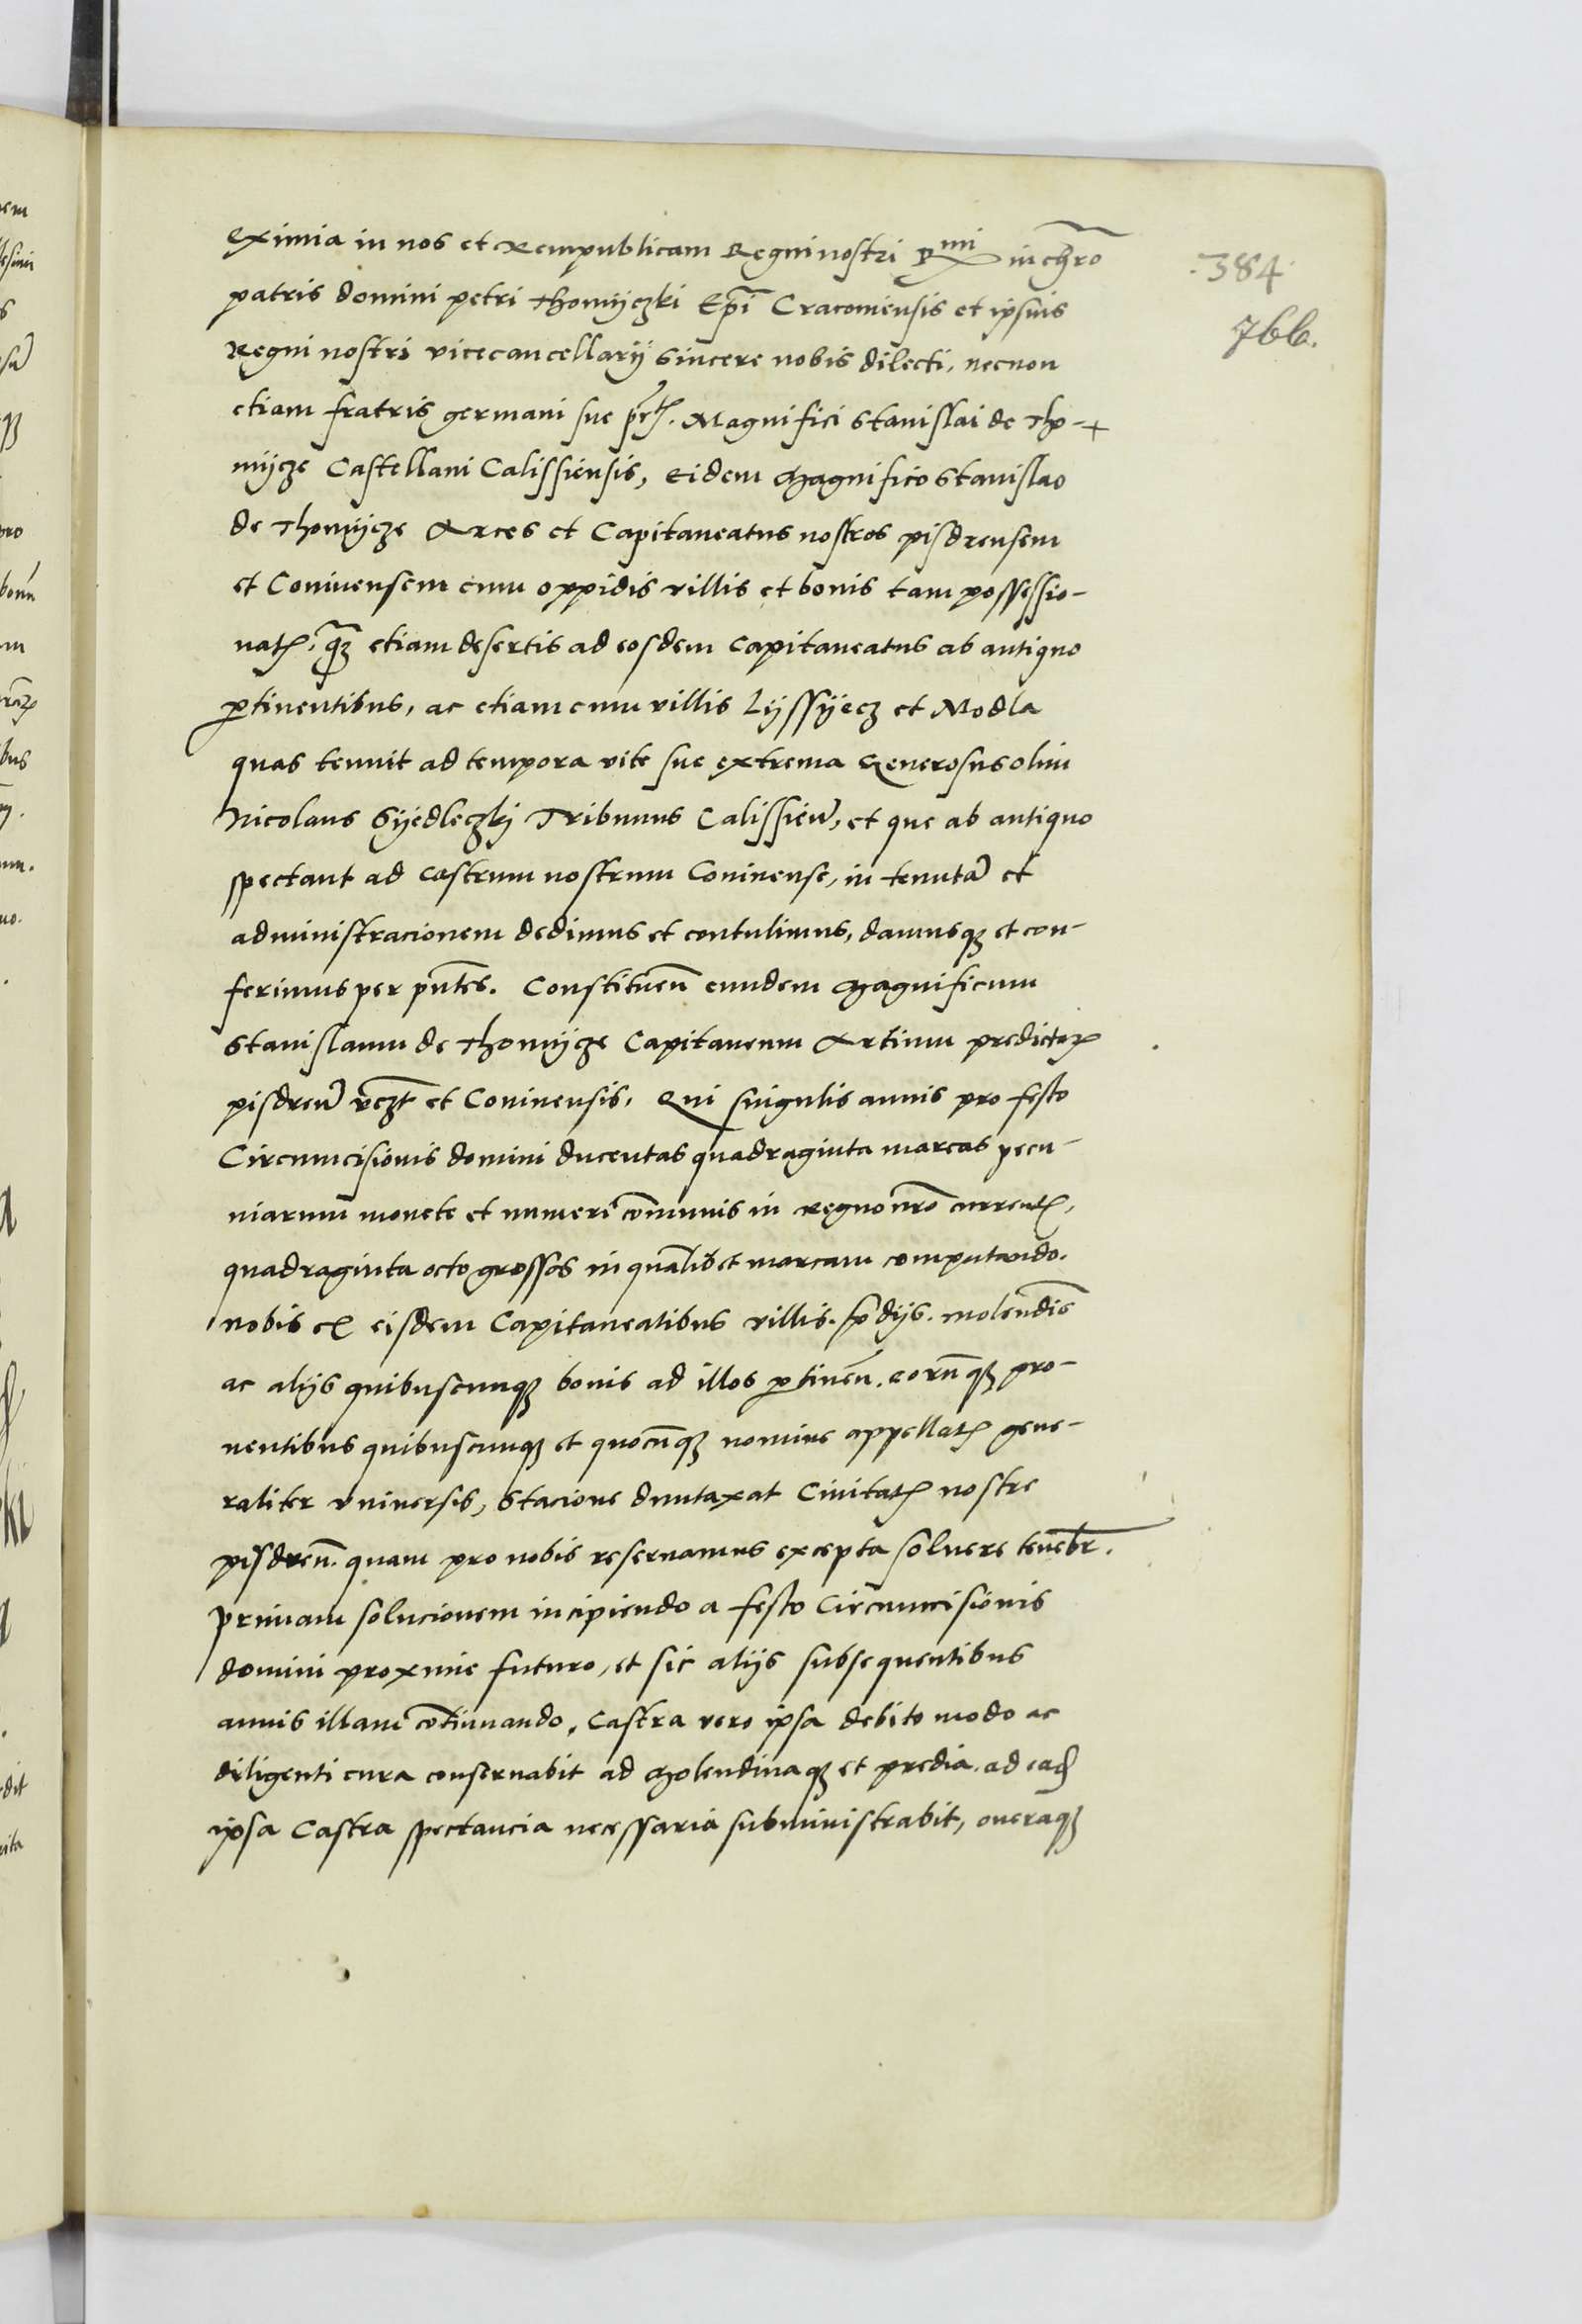 eximia in nos et Rempublicam Regni nostri Rmi in chro
patris domini petri Thomyczki Epi Cracoviensis et ipsius
Regni nostri vicecancellarij sincere nobis dilecti, necnon
etiam fratris germani sue Magnifici Stanislai de Tho-
mycze Castellani Calissiensis, Eidem Magnifico Stanislao
de Thomycze Arces et Capitaneatus nostros pisdrensem
et Coninensem cum oppidis villis et bonis tam possessio-
nat, etiam desertis ad eosdem Capitaneatus ab antiquo
ptinentibus, ac etiam cum villis Lyssyecz et Modla
quas tenuit ad tempora vite sue extrema Generosus olim
Nicolaus Syedleczkj Tribunus Calissien, et que ab antiquo
spectant ad castrum nostrum Coninense, in tenuta et
administracionem dedimus et contulimus, damusq et con-
ferimus per pntes. Constituen eundem Magnificum
Stanislaum de Thomycze Capitaneum Artium predictor
pisdren vczt et Coninensis, Qui singulis annis pro festo
Circumcisionis domini ducentas quadraginta marcas pecu-
niarum monete et numeri comunis in Regno nro current,
quadraginta octo grossos in qualibet marcam computando.
nobis ex eisdem Capitaneatibus villis. pdijs. molendis
ac alijs quibuscunq bonis ad illos ptinen. eorunq pro-
ventibus quibuscunq et quocunq nomine appellat gene-
raliter universis, Stacione duntaxat Civitat nostre
pisdren. quam pro nobis reservamus excepta solvere tenebr.
primam solucionem incipiendo a festo Circumcisionis
domini proxime futuro, et sic alijs subsequentibus
annis illam continuando, Castra vero ipsa debito modo ac
diligenti cura conservabit ad Molendinaq et predia ad ead
ipsa Castra spectancia necessaria subministrabit, oneraq
384
766.